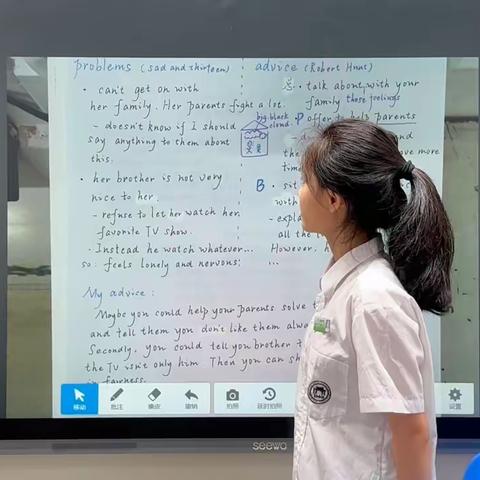 problems (sad and thirteen)
· can't get on with
her family. Her parents fight a lot.
- doesn't know if I should
say anything to them about
this.
· her brother is not very
nice to her.
- refuse to let her watch her
favorite TV show.
· Instead he watch whatever...
so: feels lonely and nervous.
advice (Robert Hunt)
· talk about with your
family these feelings
big black
cloud
P offer to help parents
and
the more
time
B · sit
with
- expla
all the t
However, h
...
My advice:
Maybe you could help your parents solve
and tell them you don't like them alwa
Secondly, you could tell you brother t
the TV isn't only him. Then you can sh
in fairness.
移动 批注 橡皮 撤销 拍照 延时拍照 设置
seewo